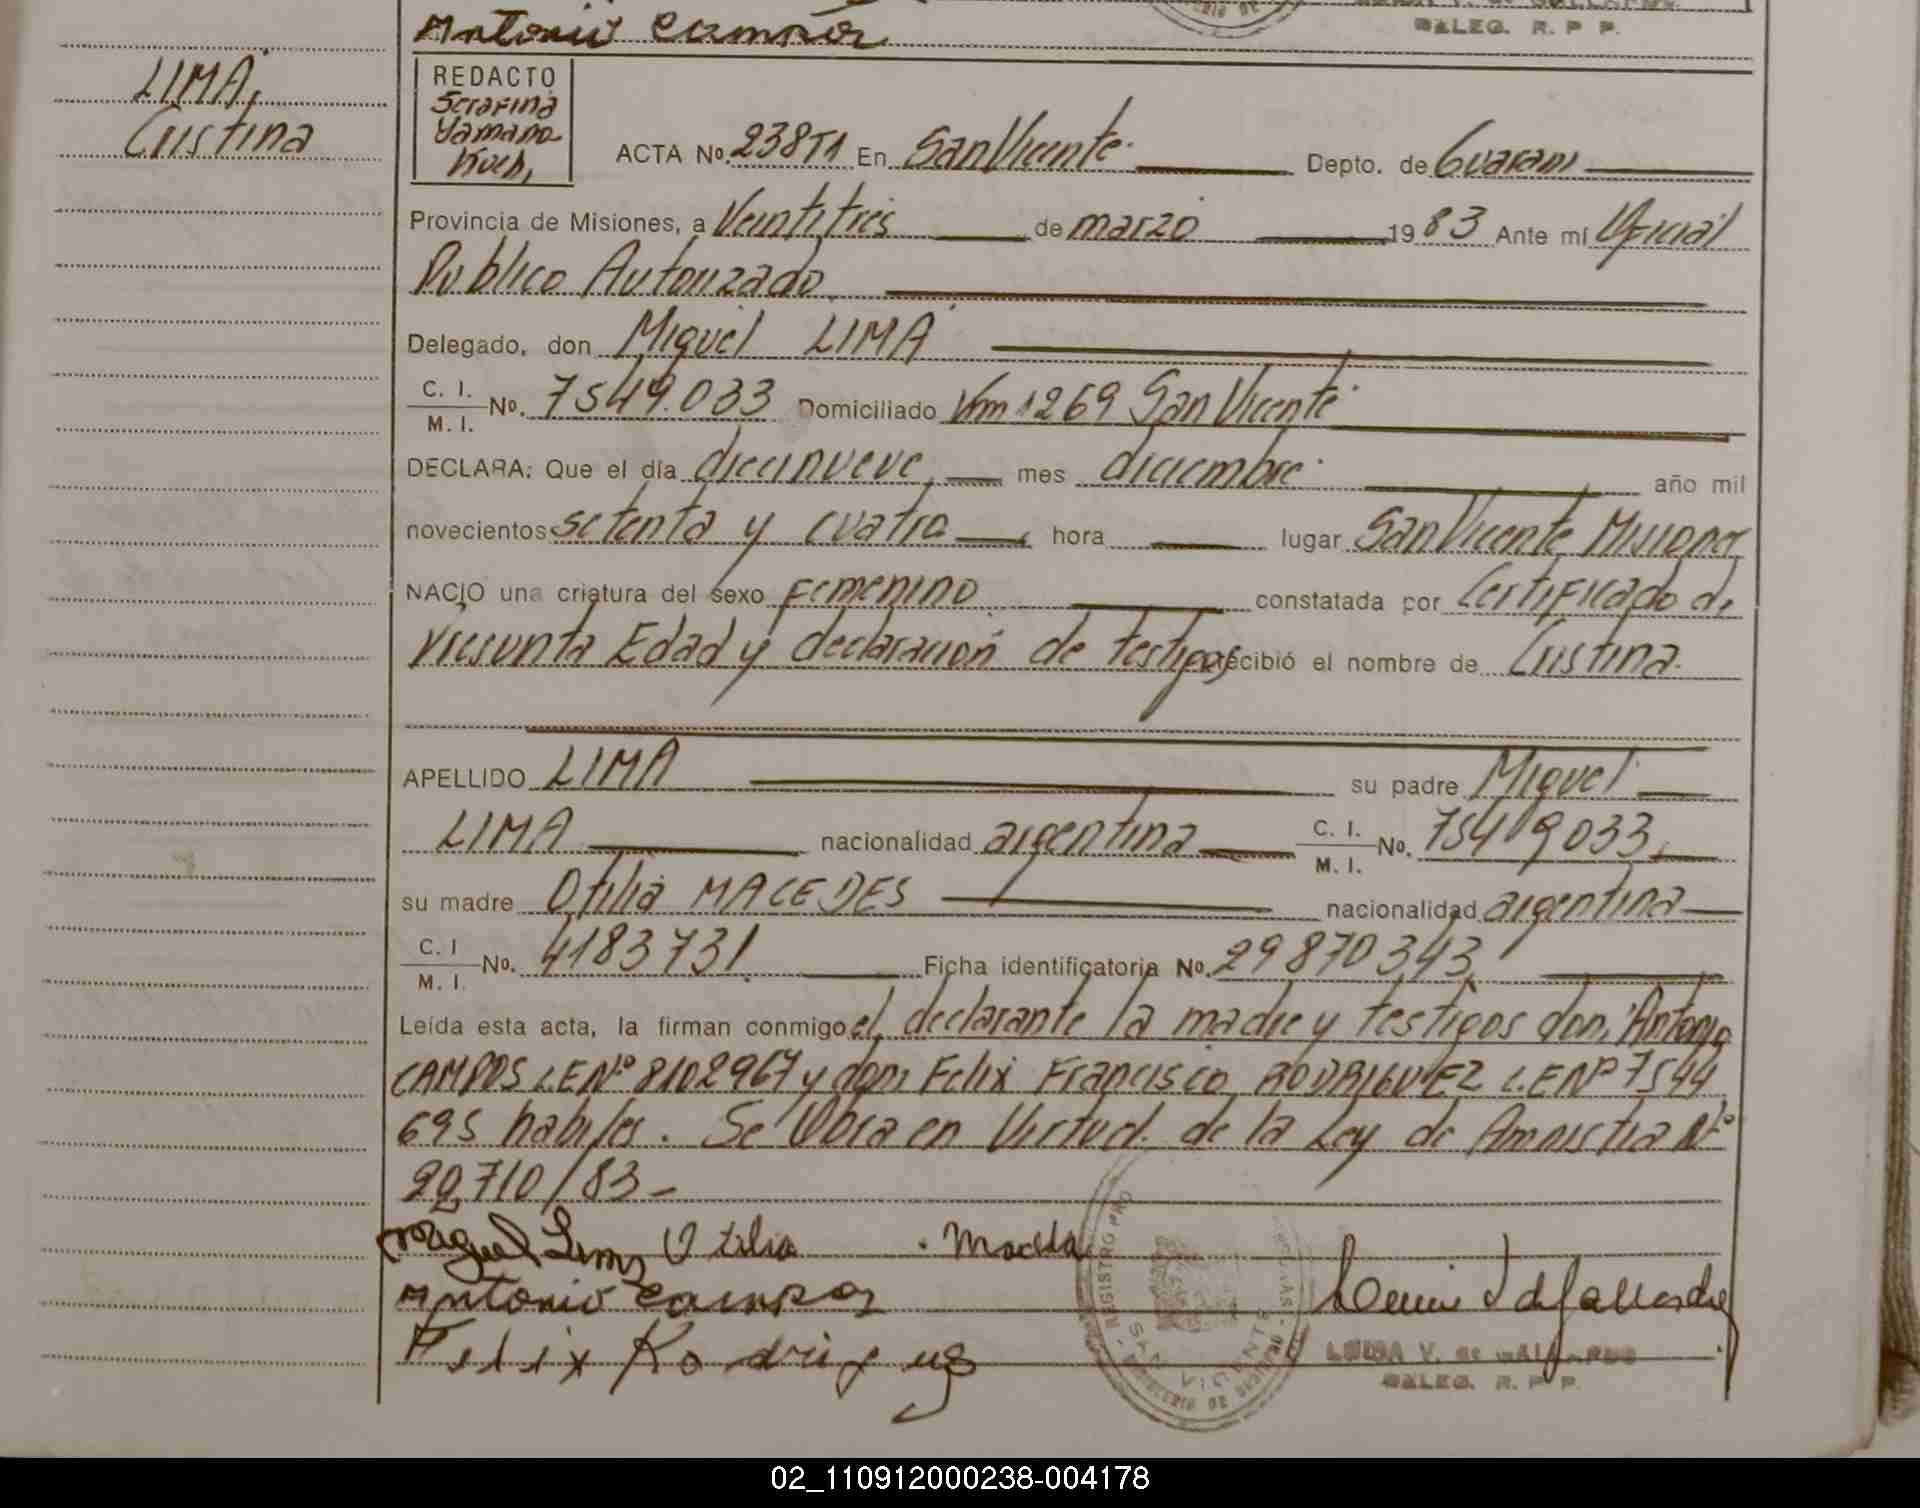 Antonio Campos
DELEG. R. P. P.
LIMA,
Cristina
REDACTO
Serafina
Yamana
Koch,
ACTA No. 238T1 En San Vicente Depto. de Guarani
Provincia de Misiones, a Veintitres de marzo 1983 Ante mí Oficial
Publico Autorizado
Delegado, don Miguel LIMA
C. I.
M. I. No. 7549.033 Domiciliado Km 1269 San Vicente
DECLARA: Que el día diecinueve, mes diciembre año mil
novecientos setenta y cuatro hora lugar San Vicente Misiones
NACIO una criatura del sexo Femenino constatada por Certificado de
Presunta Edad y declaración de testigos recibió el nombre de Cristina
APELLIDO LIMA su padre Miguel
LIMA nacionalidad argentina C. I. M. I. No. 7549033,
su madre Otilia MACEDES nacionalidad argentina
C. I. M. I. No. 4183731. Ficha identificatoria No. 29870343
Leída esta acta, la firman conmigo el declarante la madre y testigos don, Antonio
CAMPOS L.E Nº 8102967 y don, Felix Francisco RODRIGUEZ L.E Nº 7544
695 habiles. Se Obra en Virtud de la Ley de Amnistia Nº
22.710/83-
Miguel Lima Otilia
Antonio Campos
Felix Rodriguez
REGISTRO
SAN VICENTE
LUISA V. de GALLARDO
DELEG. R. P. P.
02_110912000238-004178